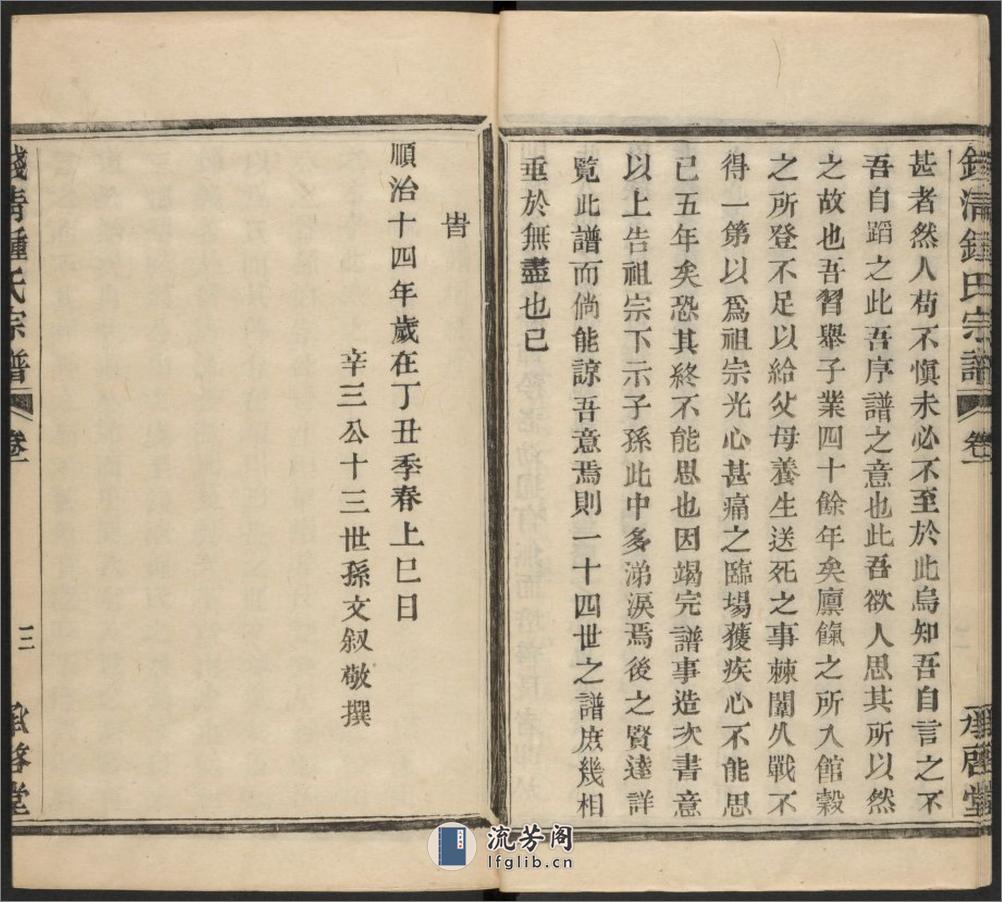 錢清鍾氏宗譜 卷一 承啓堂
甚者然人苟不慎未必不至於此烏知吾自言之不
吾自蹈之此吾序譜之意也此吾欲人思其所以然
之故也吾習舉子業四十餘年矣廩餼之所入館穀
之所登不足以給父母養生送死之事棘闈八戰不
得一第以爲祖宗光心甚痛之臨場獲疾心不能思
已五年矣恐其終不能思也因竭完譜事造次書意
以上告祖宗下示子孫此中多涕淚焉後之賢達詳
覽此譜而倘能諒吾意焉則一十四世之譜庶幾相
垂於無盡也已
旹
順治十四年歲在丁丑季春上巳日
辛三公十三世孫文叙敬撰
錢清鍾氏宗譜 卷一 三 承啓堂
流芳阁
lfglib.cn